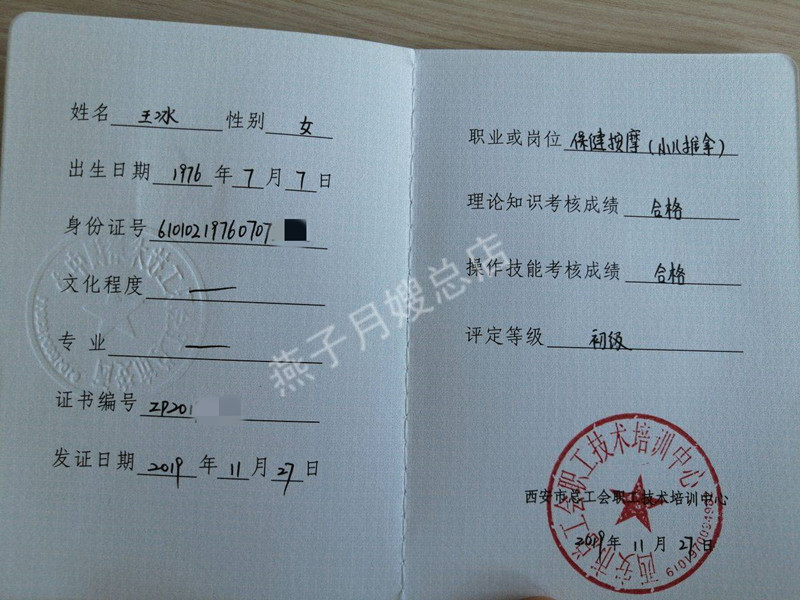 姓名 王冰 性别 女
出生日期 1976 年 7 月 7 日
身份证号 61010219760707
文化程度 —
专业 —
证书编号 ZP201
发证日期 2019 年 11 月 27 日
职业或岗位 保健按摩(小儿推拿)
理论知识考核成绩 合格
操作技能考核成绩 合格
评定等级 初级
西安市总工会职工技术培训中心
2019 年 11 月 27 日
西安市总工会职工技术培训中心
燕子月嫂总店